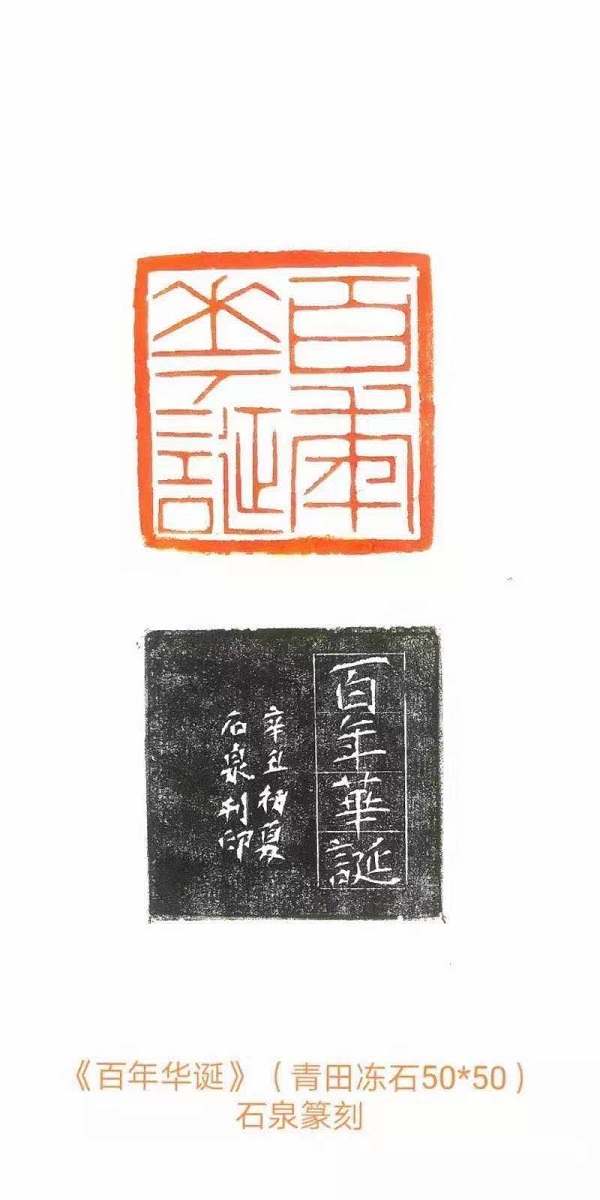 百年
華誕
百年華誕
辛丑初夏
石泉刊印
《百年华诞》（青田冻石50*50）
石泉篆刻